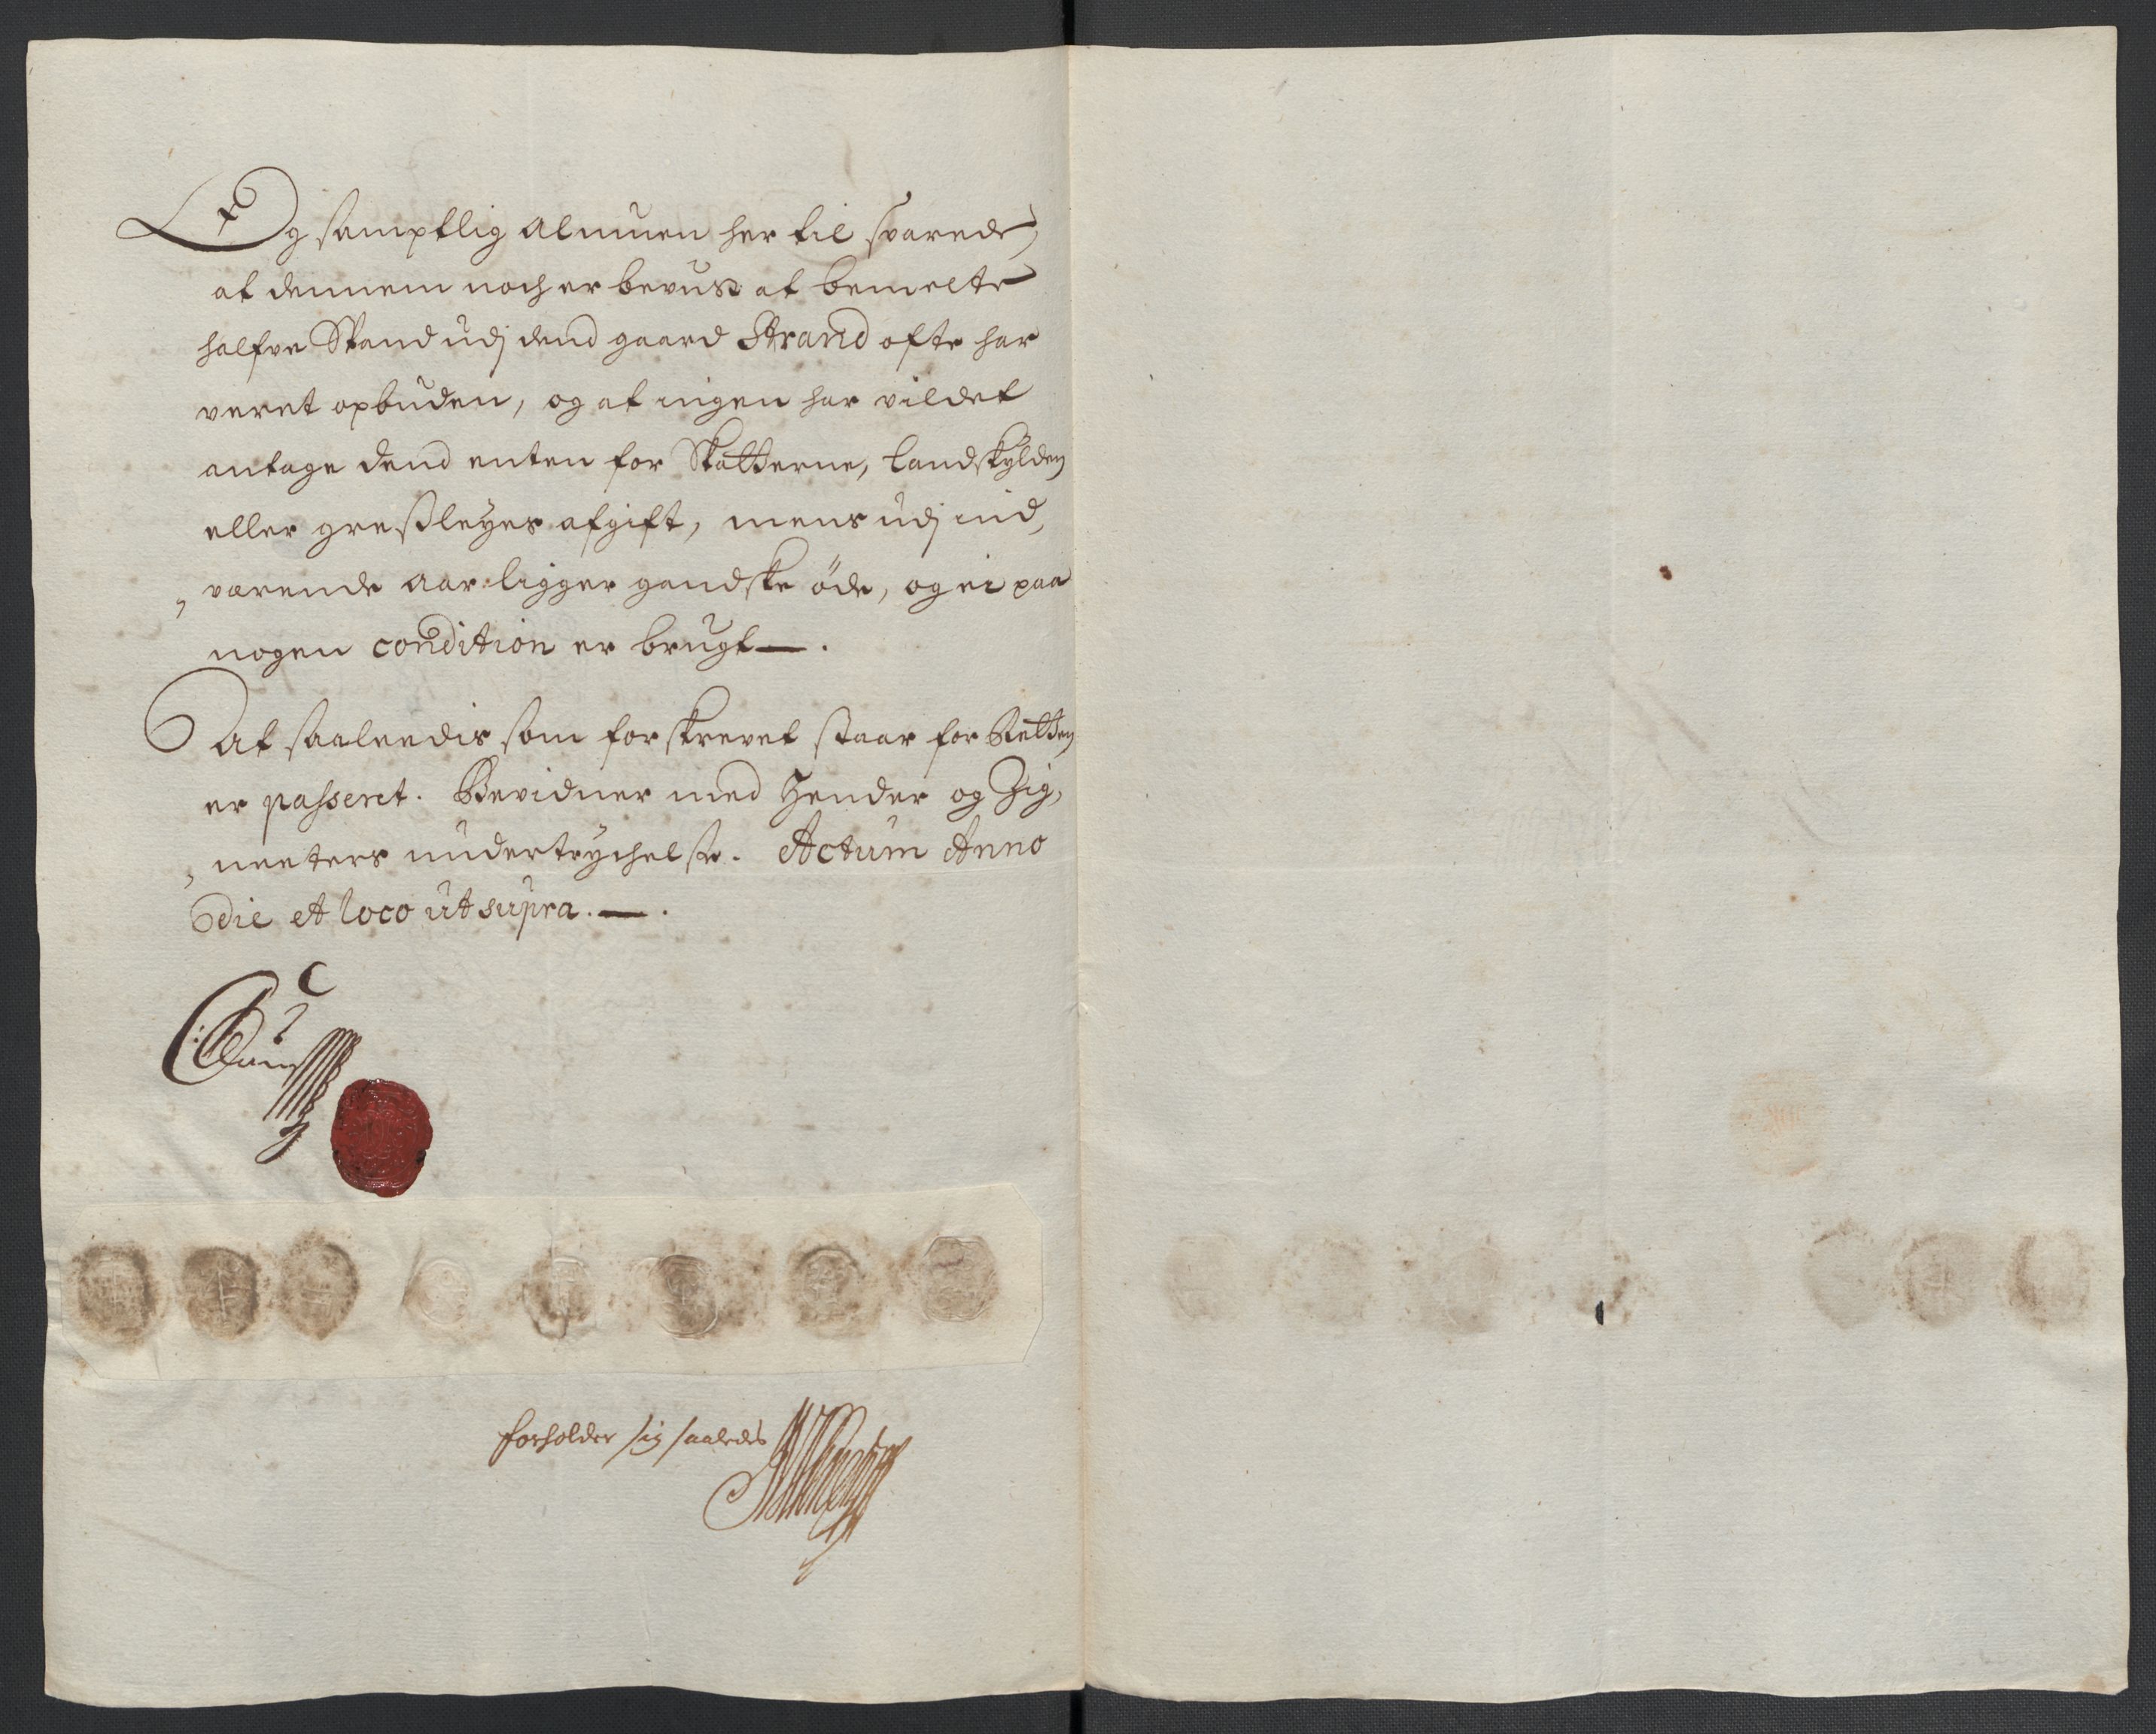 Og samptlig Almuen her til svarede
at dennem noch er bevust at bemelte
halfve Spand udj dend gaard Strand ofte har
veret opbuden, og at ingen har vildet
antage dend enten for Skatterne, Landskylden
eller gresleyes afgift, mens udj ind,
„værende Aar ligger gandske øde, og ei paa
nogen condition er brugt — .
At saaleedis som forskrevet staar for Retten
er passeret. Bevidner med Hender og Zig,
„neeters undertrychelse. Actum Anno
die et loco ut supra. — .
forholder sig saaledes